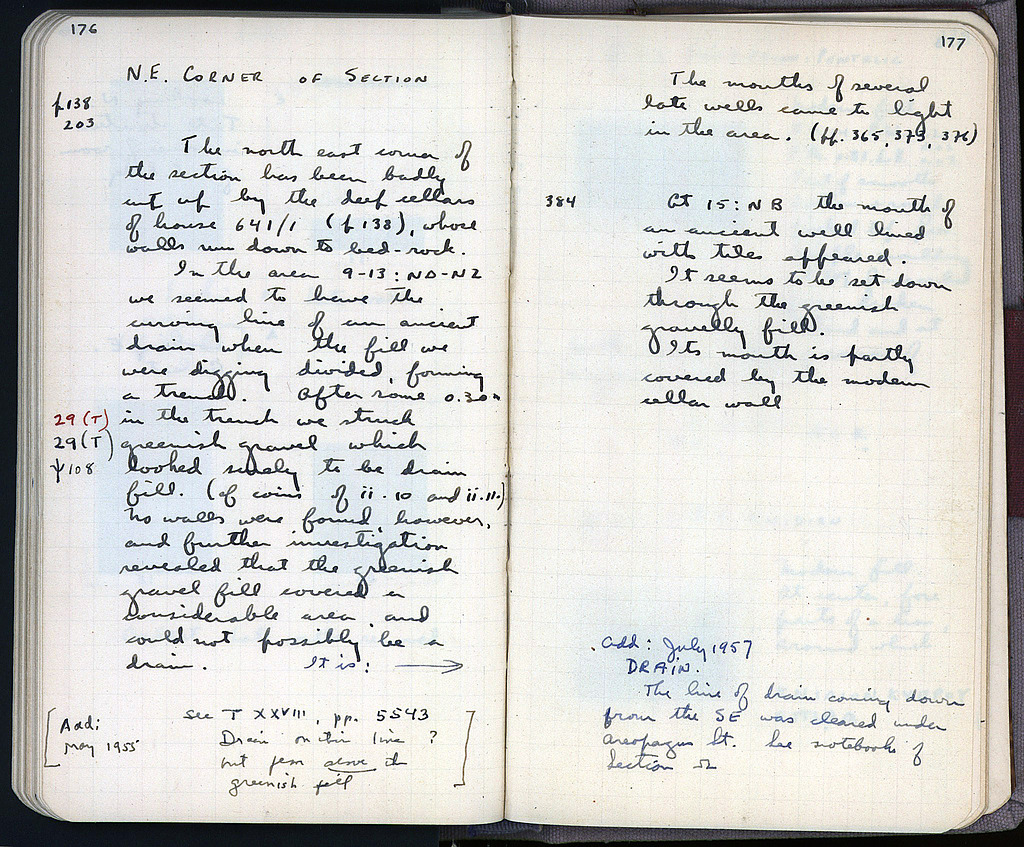 176
N.E. CORNER OF SECTION
p138
203
The north east corner of
the section has been badly
cut up by the deep cellars
of house 641/1 (p 138), whose
walls run down to bed-rock.
In the area 9-13 : ND-NZ
we seemed to have the
curving line of an ancient
drain when the fill we
were digging divided, forming
a trench. After some 0.30 m
29 (T) in the trench we struck
29 (T) greenish gravel which
108 looked surely to be drain
fill. (cf coins of ii.10 and ii.11.)
No walls were found, however,
and further investigation
revealed that the greenish
gravel fill covered a
considerable area, and
could not possibly be a
drain. It is: →
Add:
May 1955
see T XXVIII, pp. 5543
Drain on this line ?
but from above the
greenish fill
177
The mouths of several
late wells came to light
in the area. (pp. 365, 373, 376)
384 At 15 : NB the mouth of
an ancient well lined
with tiles appeared.
It seems to be set down
through the greenish
gravelly fill.
Its mouth is partly
covered by the modern
cellar wall
Add: July 1957
DRAIN.
The line of drain coming down
from the SE was cleared under
Areopagus St. See notebooks of
Section Ω